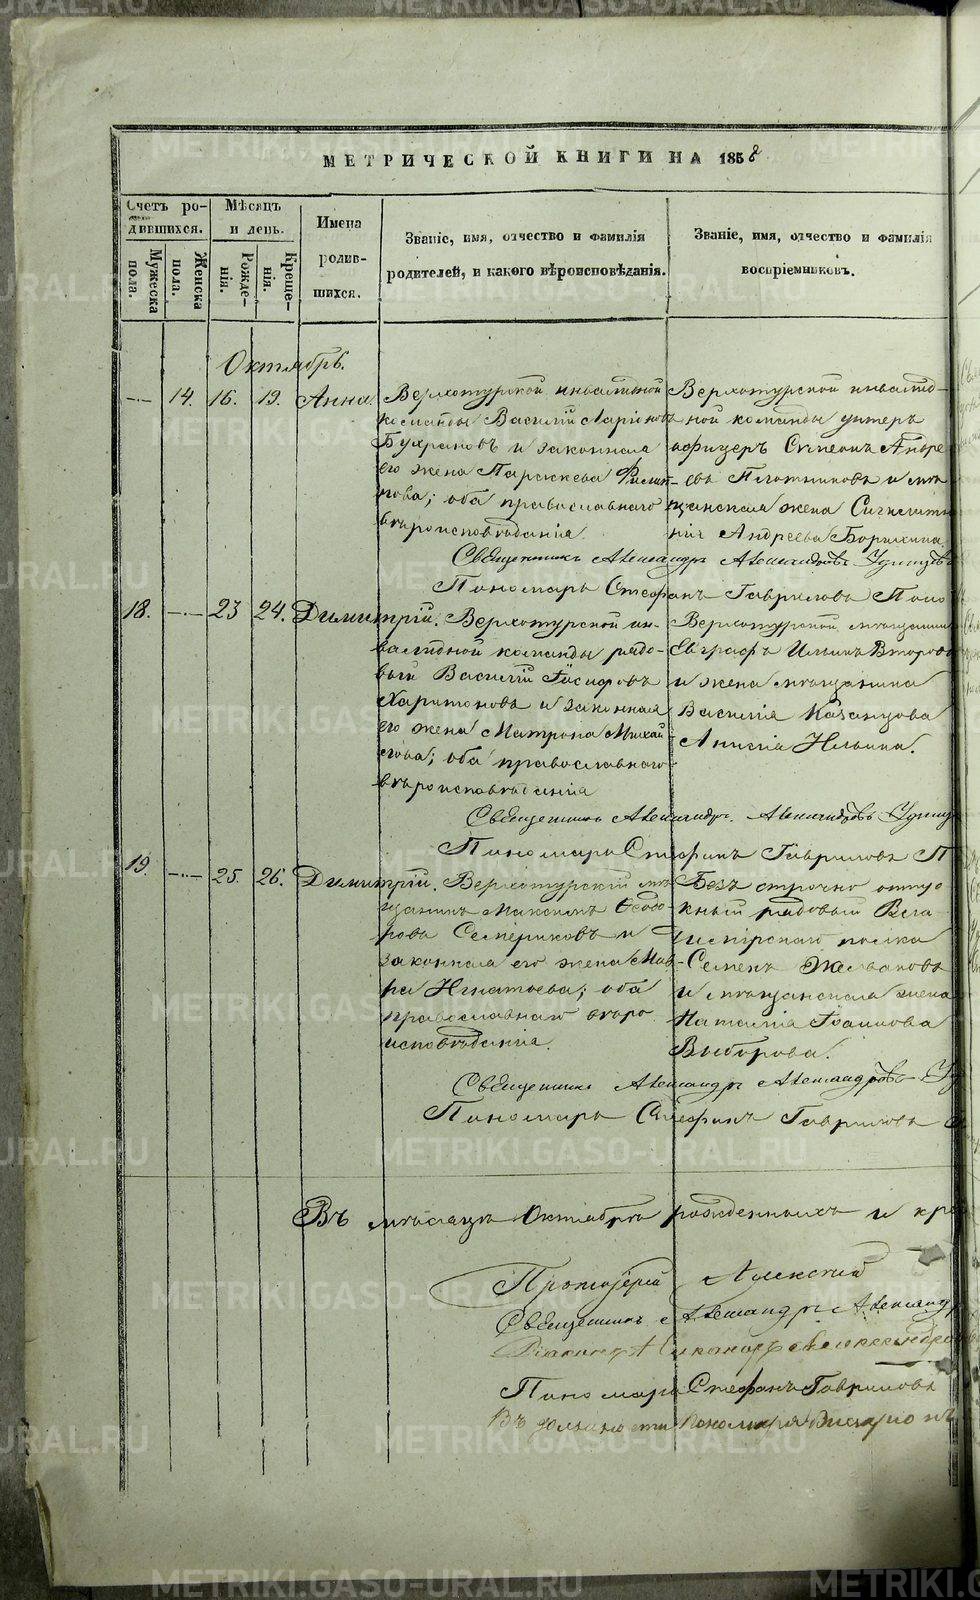 МЕТРИЧЕСКОЙ КНИГИ НА 1858
Счетъ ро-
дившихся.
Мужеска пола.
Женска пола.
Мѣсяцъ
и день.
Рожде-
нія.
Креще-
нія.
Имена
родив-
шихся.
Званіе, имя, отчество и фамилія
родителей, и какого вѣроисповѣданія.
Званіе, имя, отчество и фамилія
воспріемниковъ.
Октябрь.
14. 16. 19. Анна.
Верхотурской инвалидной
команды Василій Ларіоновъ
и законная
его жена Параскева Филип-
пова; оба православнаго
вѣроисповѣданія
Верхотурской инвалид-
ной команды унтеръ
офицеръ Семенъ Андре-
евъ Плотниковъ и мѣ-
щанская жена
Андреева
Священникъ Александръ Александровъ
Пономарь Стефанъ Гавриловъ
18. 23 24. Димитрій.
Верхотурской ин-
валидной команды рядо-
вый Василій Іосифовъ
Харитоновъ и законная
его жена Матрона Михай-
лова; оба православнаго
вѣроисповѣданія
Верхотурской мѣщанинъ
Евграфъ Ильинъ Второвъ
и жена мѣщанина
Василія Казанцова
Анисія Ильина.
Священникъ Александръ Александровъ
Пономарь Стефанъ Гавриловъ
19. 25. 26. Димитрій.
Верхотурскій мѣ-
щанинъ Максимъ Ѳедо-
ровъ Семериковъ и
законная его жена Мав-
ра Игнатьева; оба
православнаго вѣро
исповѣданія.
Безъ строчно отпу
скный рядовый
полка
Семенъ Желваковъ
и мѣщанская жена
Наталія Іоаннова
Выборова.
Священникъ Александръ Александровъ
Пономарь Стефанъ Гавриловъ
Въ мѣсяцѣ Октябрѣ рожденныхъ и кре
Протоіерей Алексій
Священникъ Александръ Александр
Діаконъ Никаноръ Александров
Пономарь Стефанъ Гавриловъ
Въ должности Пономаря
METRIKI.GASO-URAL.RU